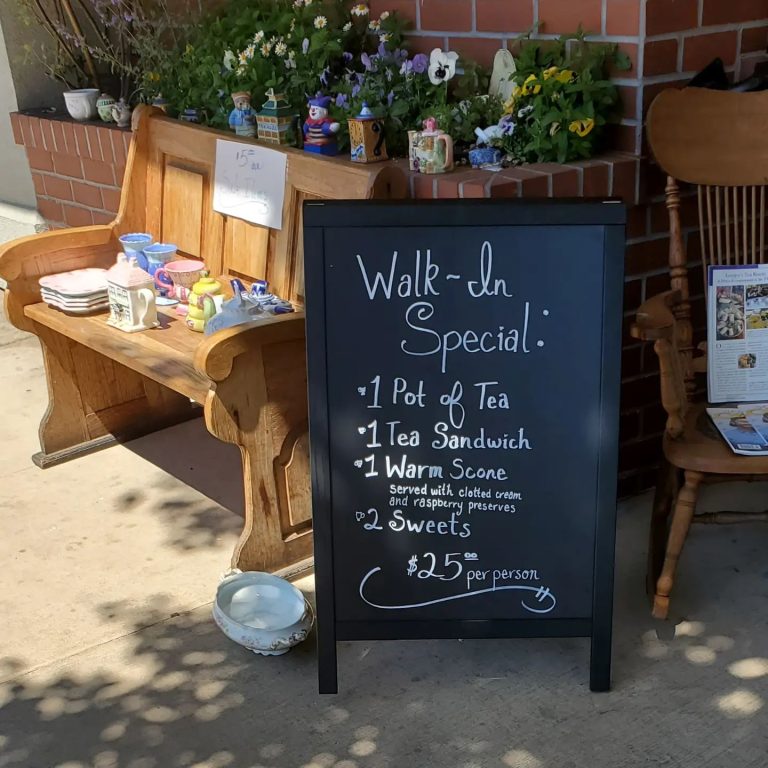 15.00
Walk-In
Special:
1 Pot of Tea
1 Tea Sandwich
1 Warm Scone
served with clotted cream
and raspberry preserves
2 Sweets
$25.00 per person